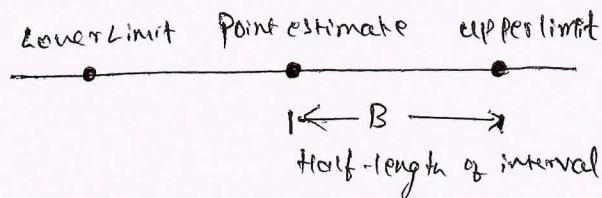 Lower Limit Point estimate upper limit
B
Half-length of interval